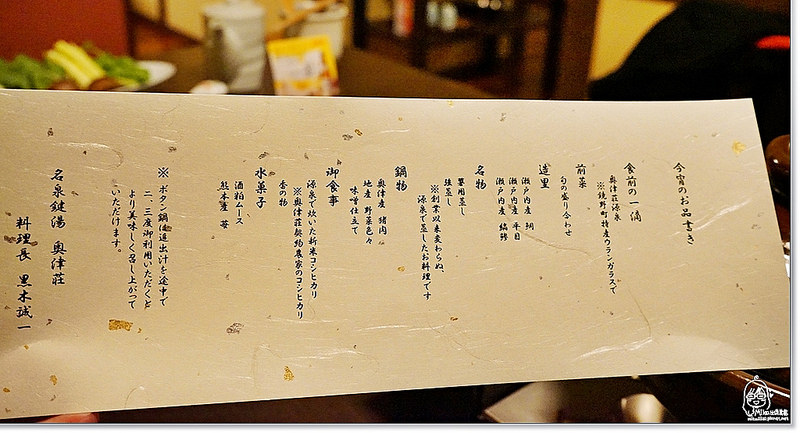 今宵のお品書き
食前の一滴
奥津荘源泉
※鏡野町特産ウランガラスで
前菜
旬の盛り合わせ
造里
瀬戸内産 鯛
瀬戸内産 平目
瀬戸内産
名物
蒸し
※創業以来変わらぬ、
源泉で蒸したお料理です
鍋物
奥津産 猪肉
地産 野菜色々
味噌仕立て
御食事
源泉で炊いた新米コシヒカリ
※奥津荘契約農家のコシヒカリ
香の物
水菓子
酒粕ムース
熊本産 苺
※ボタン鍋は追出汁を途中で
二、三度御利用いただくと
より美味しく召し上がって
いただけます。
名泉鍵湯 奥津荘
料理長 黒木誠一